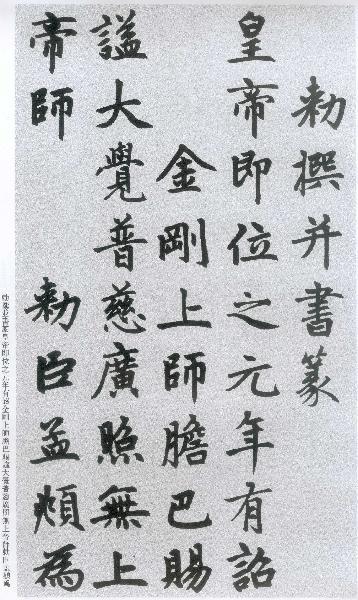 勑撰并書篆
皇帝即位之元年有詔
金剛上師膽巴賜
謚大覺普慈廣照無上
帝師　勑臣孟頫為